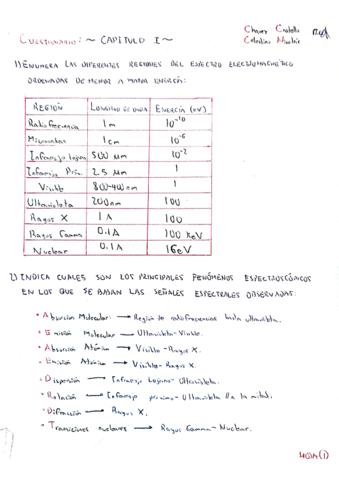 CUESTIONARIO: ~ CAPÍTULO I ~
1) ENUMERA LAS DIFERENTES REGIONES DEL ESPECTRO ELECTROMAGNÉTICO
ORDENADAS DE MENOR A MAYOR ENERGÍA:
REGIÓN LONGITUD DE ONDA ENERGÍA (eV)
Radiofrecuencia 1 m 10^-10
Microondas 1 cm 10^-6
Infrarrojo lejano 500 µm 10^-2
Infrarrojo Próx. 2.5 µm 1
Visible 800-400 nm 1
Ultravioleta 200 nm 100
Rayos X 1 Å 100
Rayos Gamma 0.1 Å 100 KeV
Nuclear 0.1 Å 1 GeV
2) INDICA CUALES SON LOS PRINCIPALES FENÓMENOS ESPECTROSCÓPICOS
EN LOS QUE SE BASAN LAS SEÑALES ESPECTRALES OBSERVADAS:
• Absorción Molecular: → Región de radiofrecuencias hasta ultravioleta.
• Emisión Molecular → Ultravioleta-Visible.
• Absorción Atómica → Visible-Rayos X.
• Emisión Atómica → Visible-Rayos X.
• Dispersión → Infrarrojo Lejano-Ultravioleta.
• Rotación → Infrarrojo próximo-Ultravioleta la mitad.
• Difracción → Rayos X.
• Transiciones nucleares → Rayos Gamma-Nuclear.